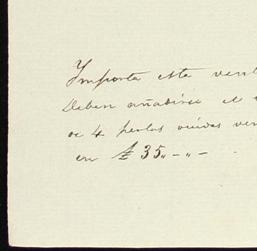 Importa esta vent
Deben añadirse el
de 4 perlas unidas ven
en £ 35,,-,,-